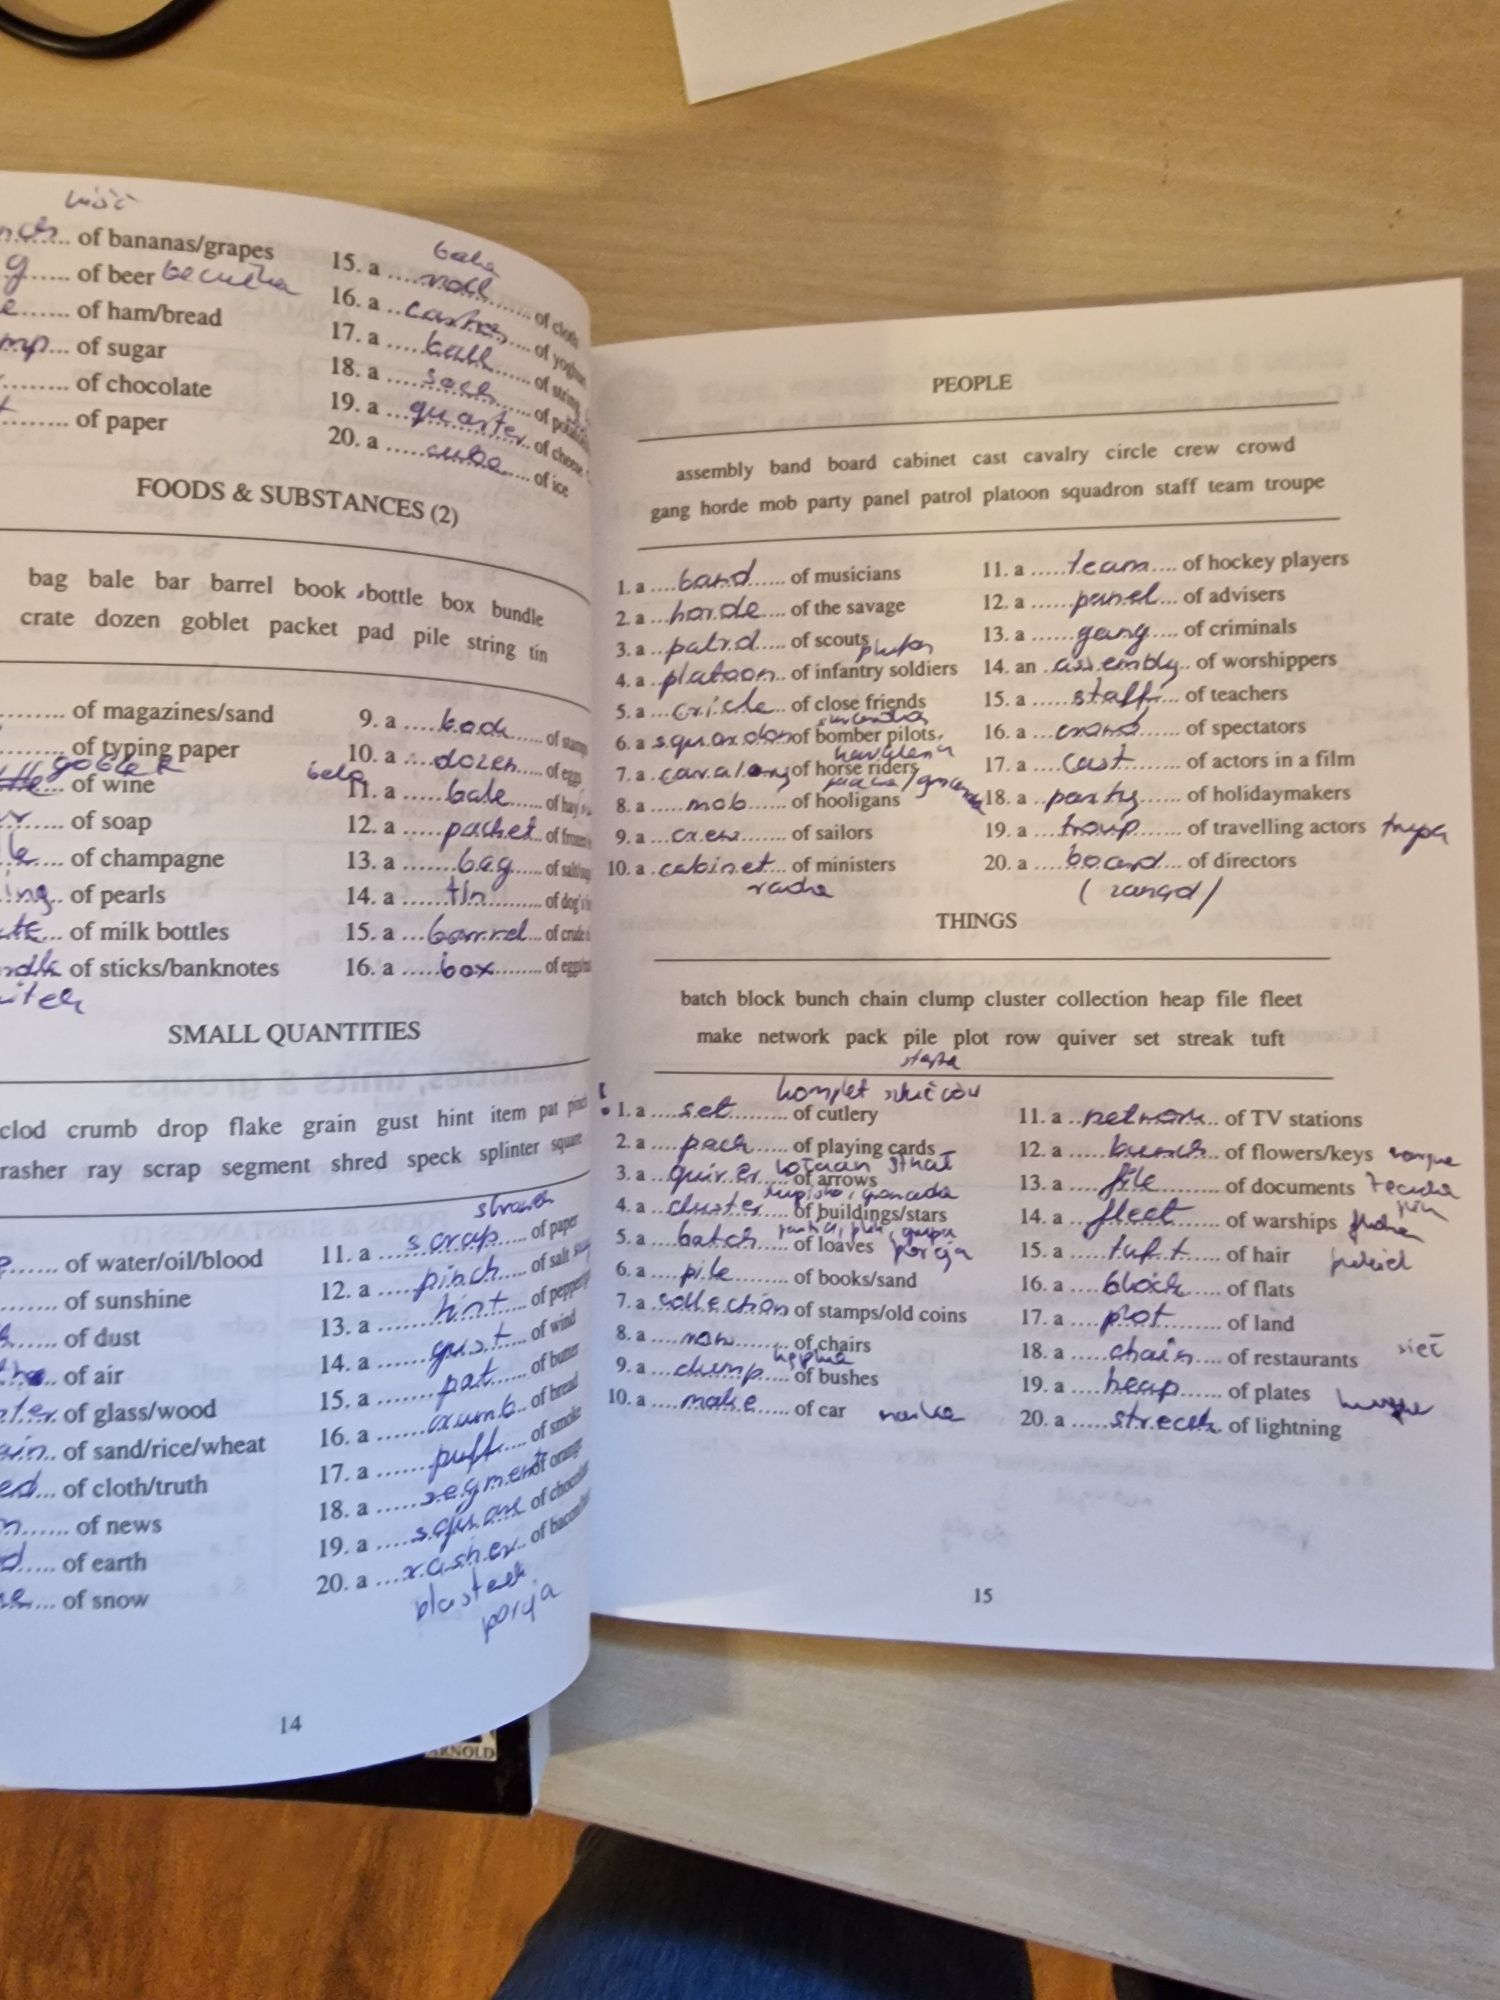 of bananas/grapes
of beer
of ham/bread
of sugar
of chocolate
of paper
15. a roll of cloth
16. a of
17. a ball of string
18. a sack of
19. a quarter of cheese
20. a cube of ice
FOODS & SUBSTANCES (2)
bag bale bar barrel book bottle box bundle
crate dozen goblet packet pad pile string tin
of magazines/sand
of typing paper
goblet
of wine
of soap
of champagne
of pearls
of milk bottles
of sticks/banknotes
9. a book of
10. a dozen of eggs
bela
11. a bale of hay
12. a packet of
13. a bag of
14. a tin of
15. a barrel of crude
16. a box of
SMALL QUANTITIES
clod crumb drop flake grain gust hint item pat pinch
rasher ray scrap segment shred speck splinter square
of water/oil/blood
of sunshine
of dust
of air
of glass/wood
of sand/rice/wheat
of cloth/truth
of news
of earth
of snow
11. a scrap of paper
12. a pinch of salt
13. a hint of
14. a gust of wind
15. a pat of butter
16. a crumb of bread
17. a puff of smoke
18. a segment of orange
19. a square of chocolate
20. a rasher of
plasterek
porcja
14
ARNOLD
PEOPLE
assembly band board cabinet cast cavalry circle crew crowd
gang horde mob party panel patrol platoon squadron staff team troupe
1. a band of musicians
2. a horde of the savage
3. a patrol of scouts
pluton
4. a platoon of infantry soldiers
5. a of close friends
6. a of bomber pilots
7. a of horse riders
8. a mob of hooligans
9. a crew of sailors
10. a cabinet of ministers
rada
11. a team of hockey players
12. a panel of advisers
13. a gang of criminals
14. an assembly of worshippers
15. a staff of teachers
16. a crowd of spectators
17. a cast of actors in a film
18. a party of holidaymakers
19. a troup of travelling actors trupa
20. a board of directors
(zarząd)
THINGS
batch block bunch chain clump cluster collection heap file fleet
make network pack pile plot row quiver set streak tuft
sterta
komplet sztućców
1. a set of cutlery
2. a pack of playing cards
3. a quiver of arrows
4. a cluster of buildings/stars
5. a batch of loaves porcja
6. a pile of books/sand
7. a collection of stamps/old coins
8. a row of chairs
9. a clump of bushes
10. a make of car marka
11. a network of TV stations
12. a bunch of flowers/keys
13. a file of documents teczka
14. a fleet of warships
15. a tuft of hair
16. a block of flats
17. a plot of land
18. a chain of restaurants sieć
19. a heap of plates
20. a of lightning
15